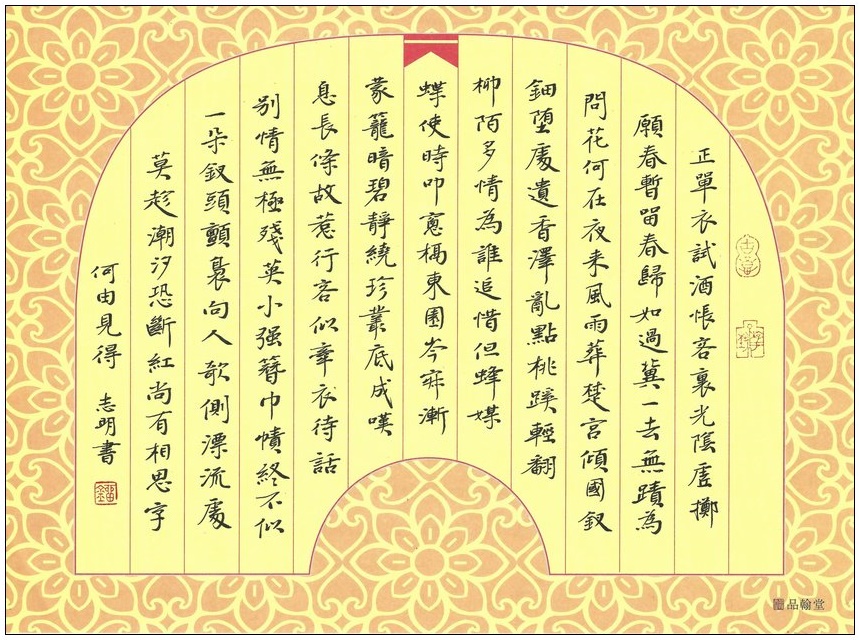 正單衣試酒悵客裏光陰虛擲
願春暫留春歸如過翼一去無蹟為
問花何在夜来風雨葬楚宮傾國釵
鈿墮處遺香澤亂點桃蹊輕翻
柳陌多情為誰追惜但蜂媒
蝶使時叩窗槅東園岑寂漸
蒙籠暗碧靜繞珍叢底成嘆
息長條故惹行客似牽衣待話
別情無極殘英小强簪巾幘終不似
一朵釵頭顫裊向人欹側漂流處
莫趁潮汐恐斷紅尚有相思字
何由見得 志明書
品翰堂